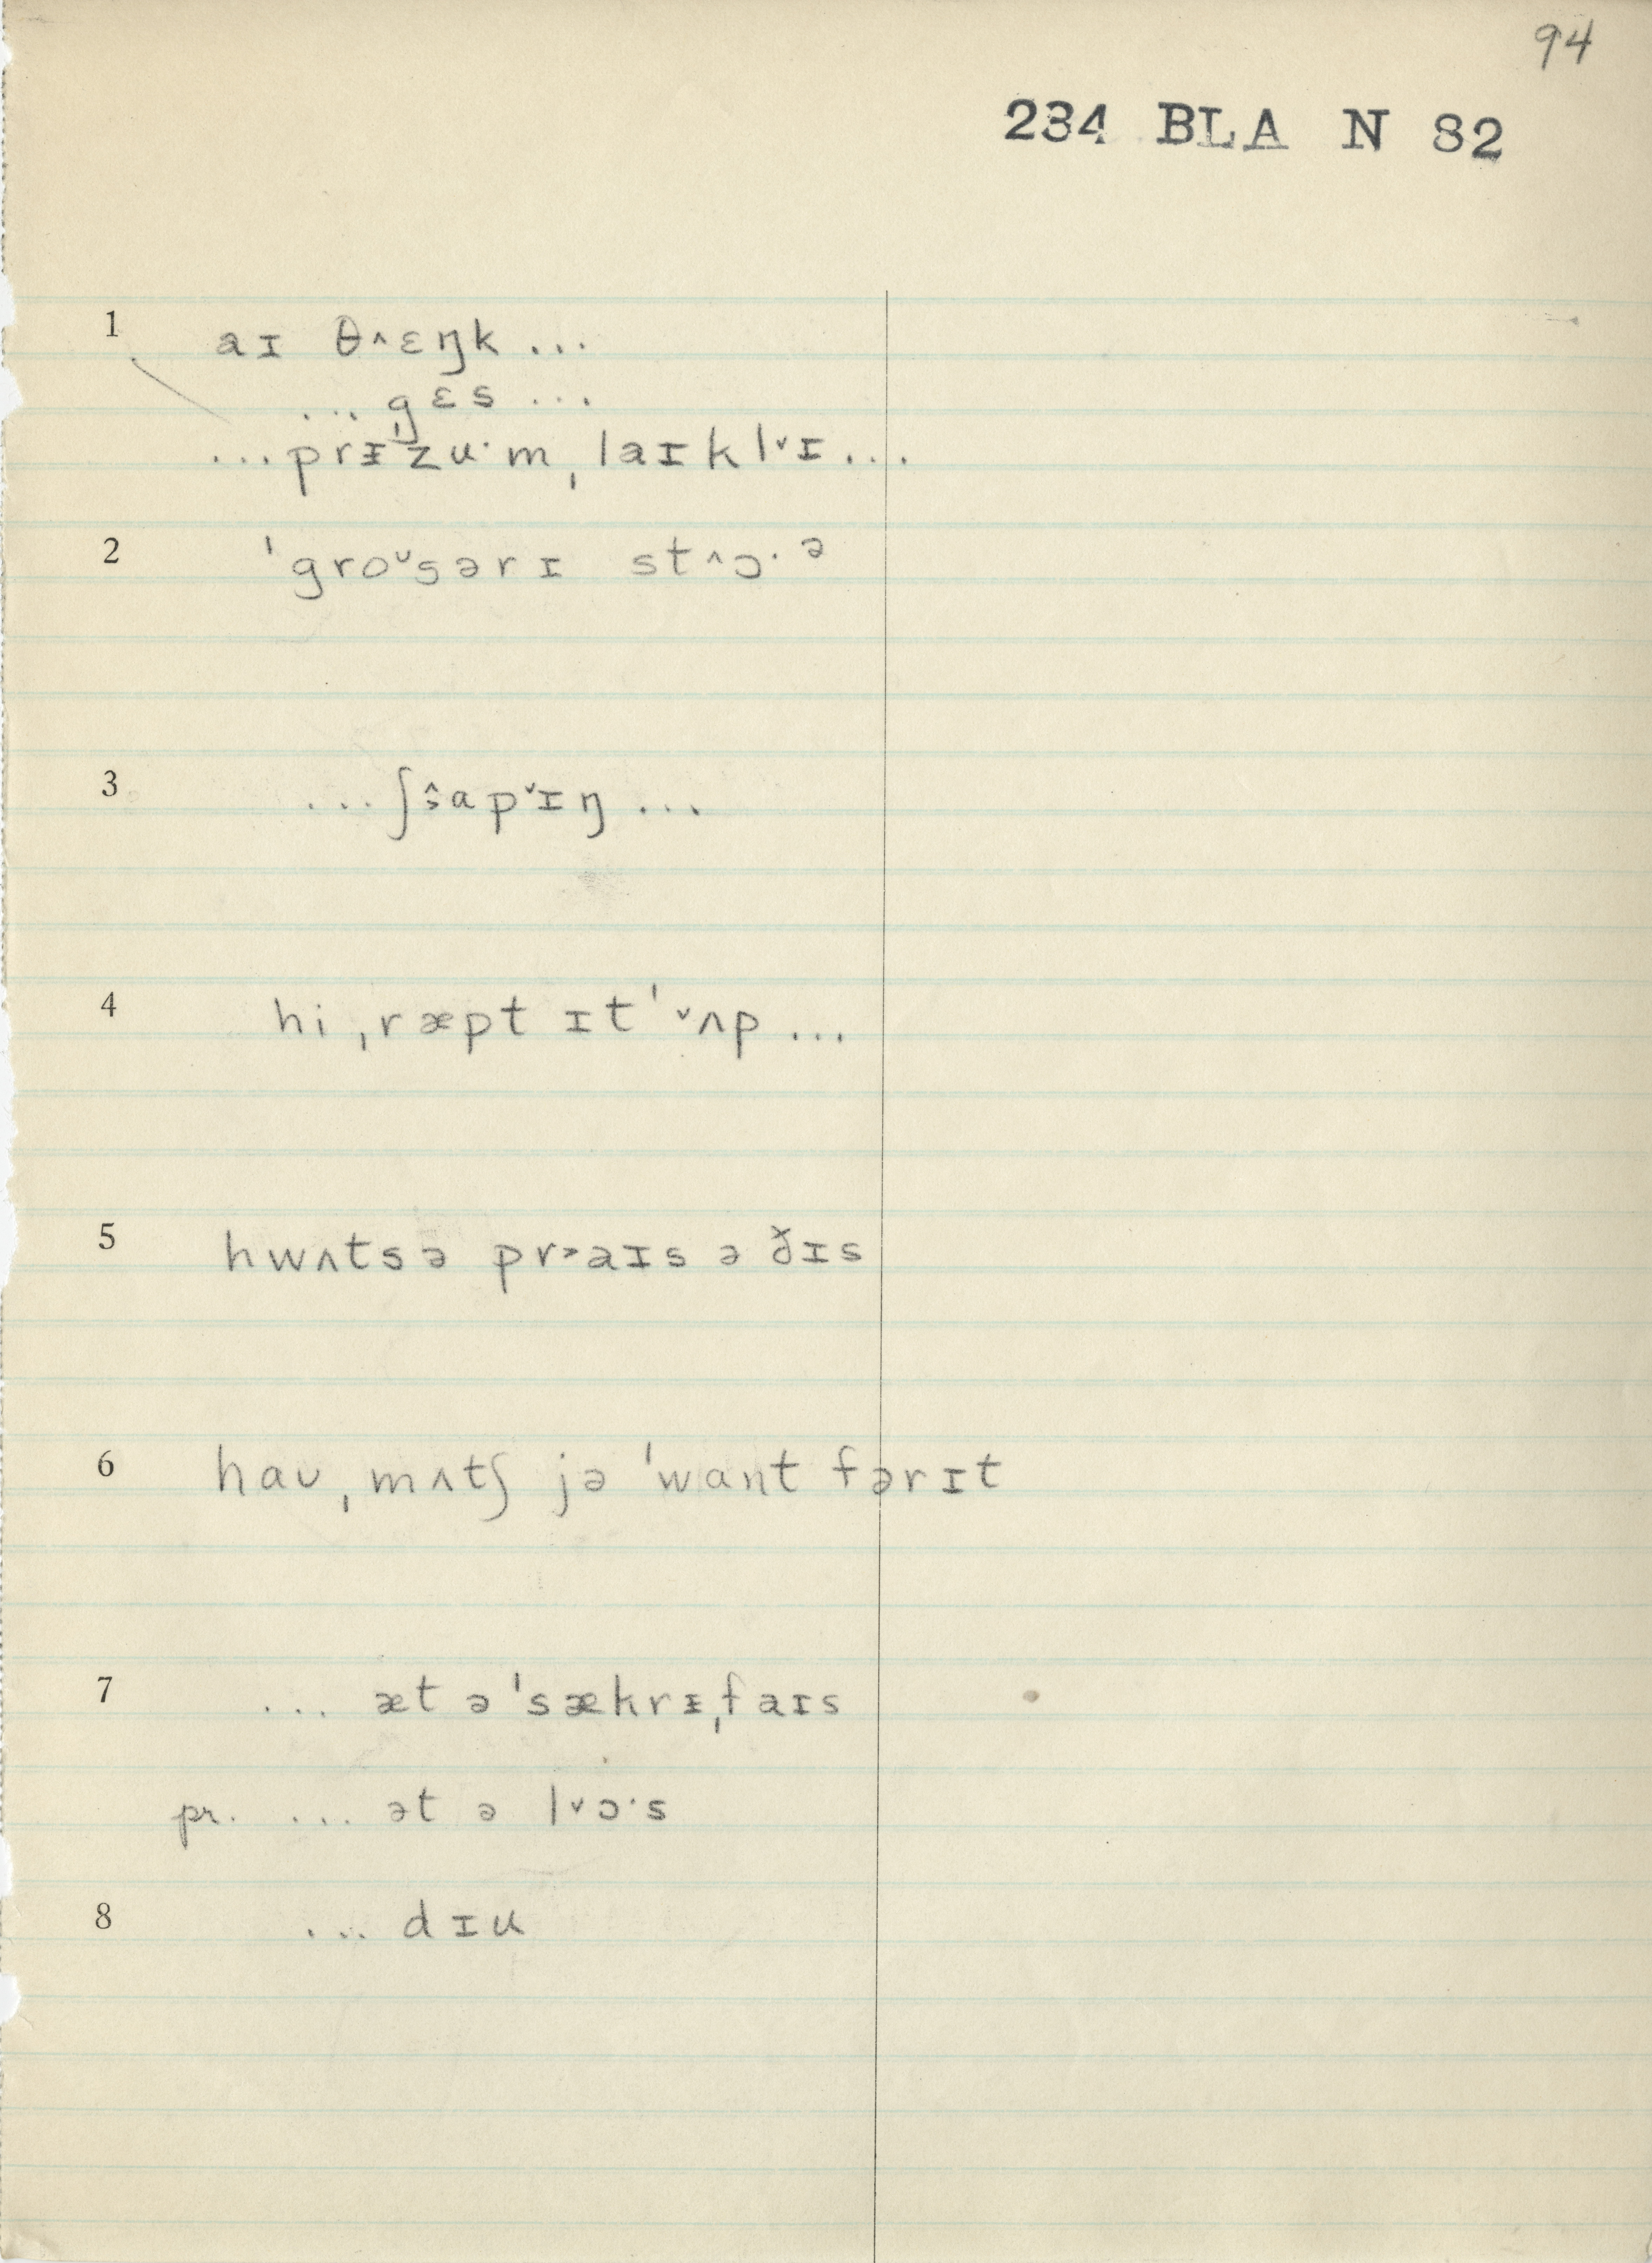 94
234 BLA N 82
1 aɪ θ˄ɛŋk ...
... gɛs ...
... prᵻˈzu·m ˌlaɪkl˅ɪ ...
2 ˈgroᵕsərɪ st˄ɔ·ᵊ
3 ... ʃŝap˅ɪŋ ...
4 hi ˌræpt ɪt ˈ˅ʌp ...
5 hwʌtsə pr˃aɪs ə ð̌ɪs
6 haʊ ˌmʌtʃ jə ˈwant fərɪt
7 ... æt ə ˈsækrᵻˌfaɪs
pr. ... ət ə l˅ɔ·s
8 ... dɪu